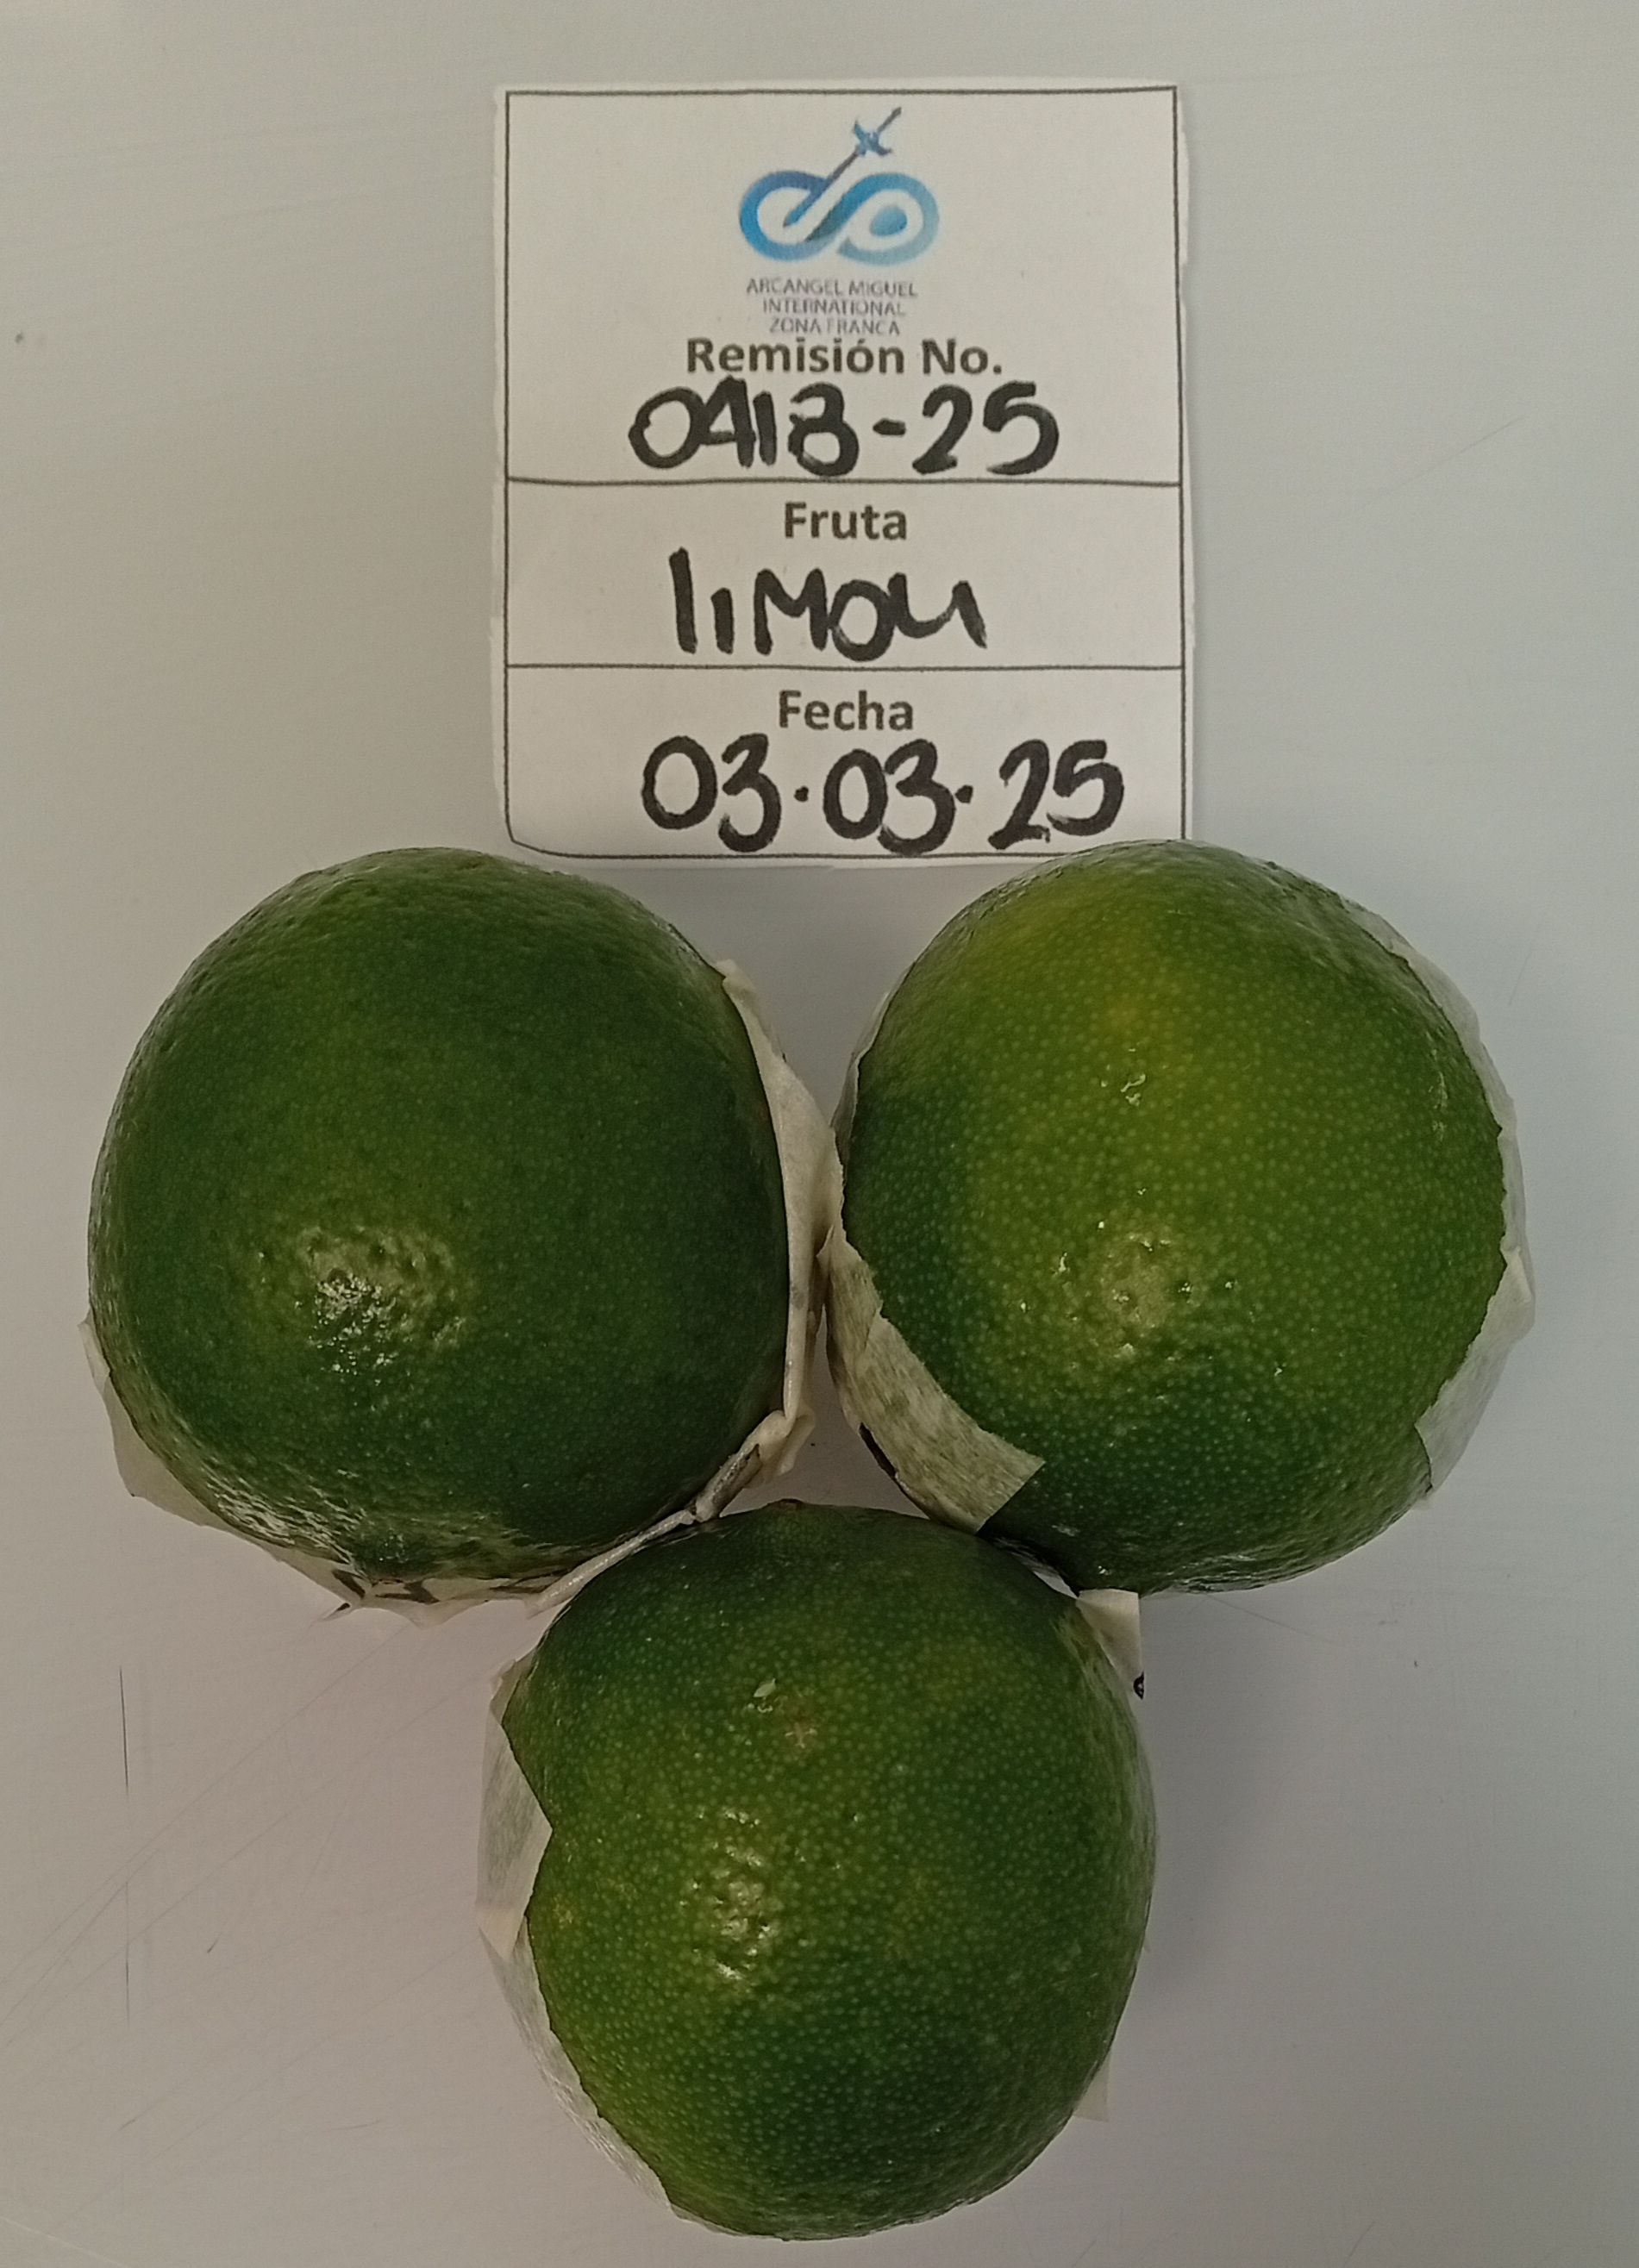 ARCANGEL MIGUEL
INTERNATIONAL
ZONA FRANCA
Remisión No.
0418-25
Fruta
lIMON
Fecha
03.03.25